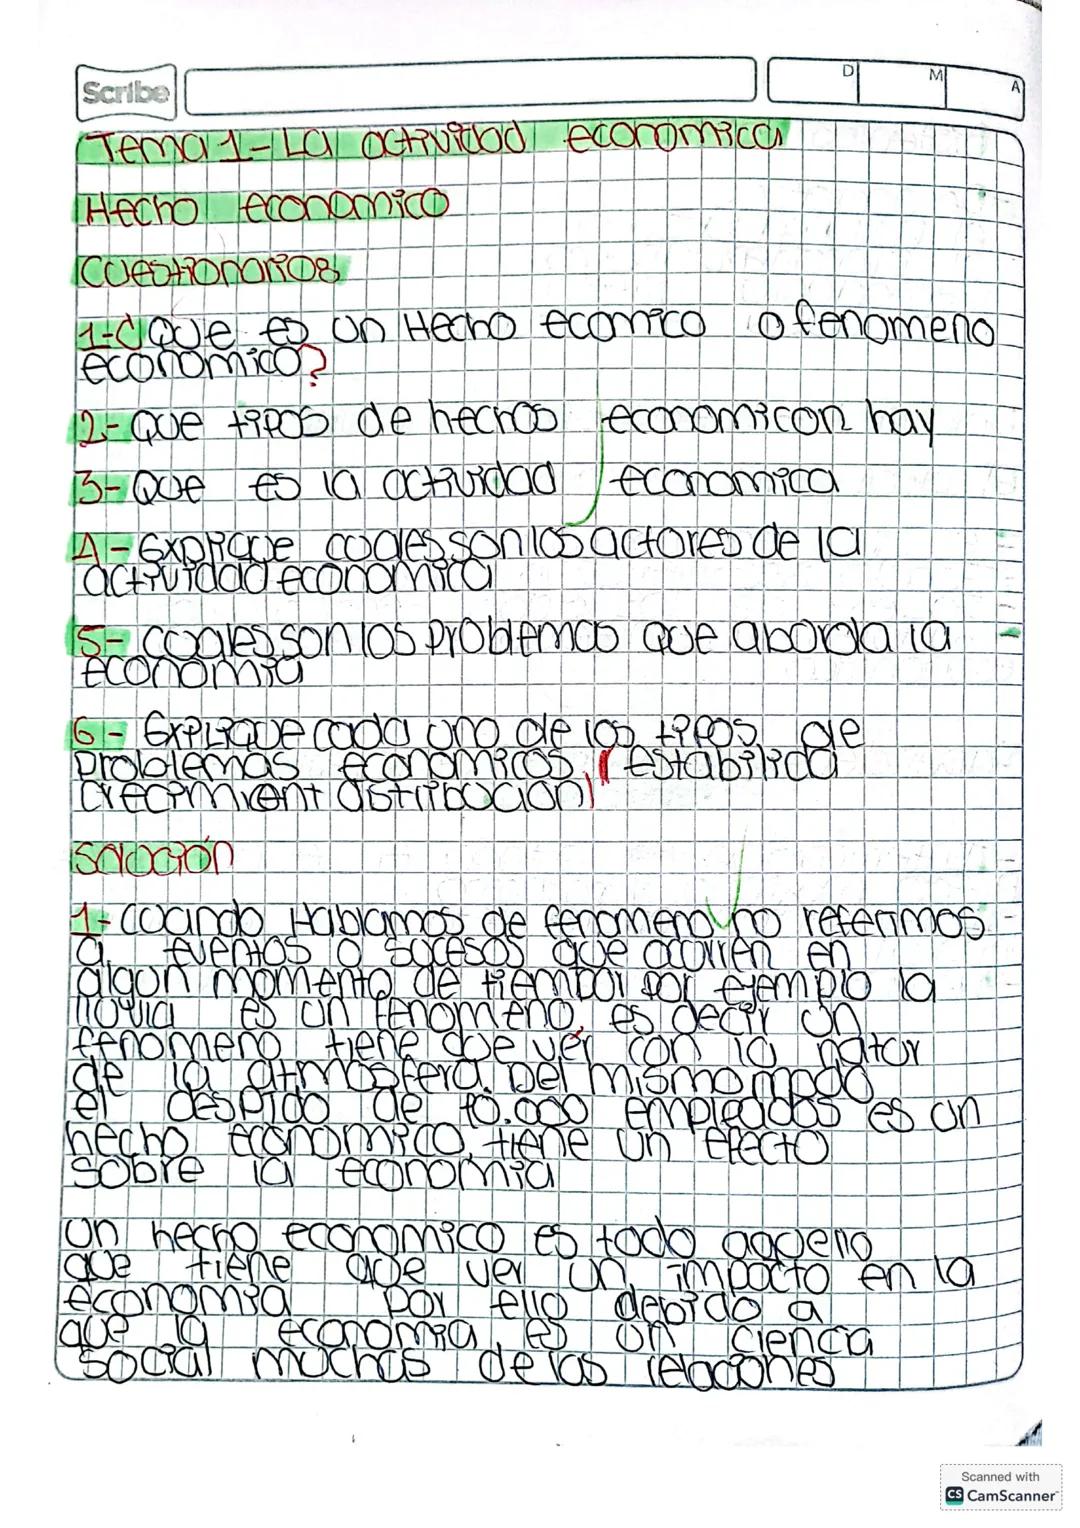 Scribe
D M A
Tema 1- La actividad economica
Hecho economico
Cuestionarios
1-¿ Que es un Hecho ecomico o fenomeno
economico?
2- Que tipos de hechos economicon hay
3- Que es la actividad economica
4- Explique cuales son los actores de la
actividad economica
5- cuales son los problemas que aborda la
economia
6- Explique cada uno de los tipos de
problemas economicos (estabilida
crecimient distribucion)
Solución
1- cuando Hablamos de fenomeno no referimos
a eventos o sucesos que ocurren en
algun momento de tiempo, por ejemplo la
lluvia es un fenomeno, es decir un
fenomeno tiene que ver con la natur
de la atmosfera. Del mismo modo
el despido de 10.000 empleados es un
hecho economico, tiene un efecto
sobre la economia
un hecho economico es todo aquello
que tiene que ver un impacto en la
economia por ello debido a
que la economia es un ciencia
social muchas de las relaciones
Scanned with
CS CamScanner